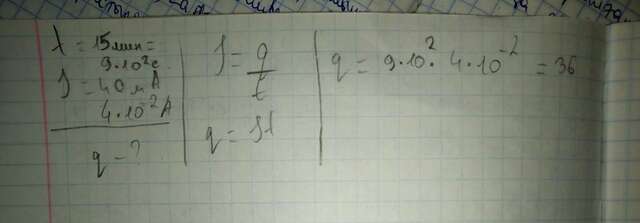 t = 15 мин =
9·10² с
J = 40 мА
4·10⁻² А
q - ?
J = q/t
q = Jt
q = 9·10² · 4·10⁻² = 36